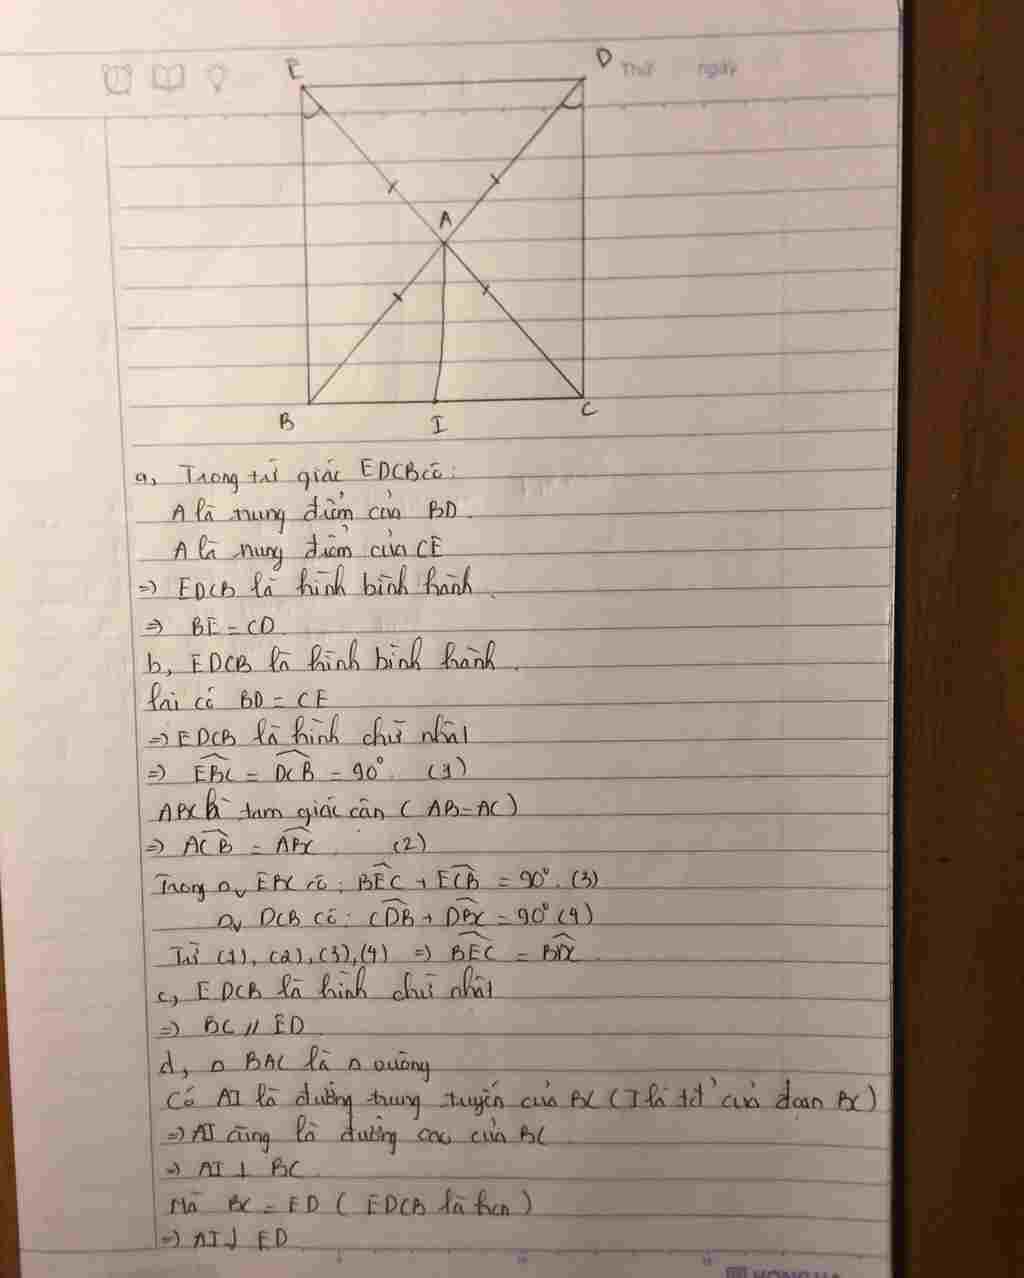 E
D
Thứ ngày
A
B
I
C
a, Trong tứ giác EDCB có:
A là trung điểm của BD.
A là trung điểm của CE
=> EDCB là hình bình hành.
=> BE = CD.
b, EDCB là hình bình hành.
lại có BD = CE
=> EDCB là hình chữ nhật
=> EBC = DCB = 90° (1)
ABC là tam giác cân (AB=AC)
=> ACB = ABC (2)
Trong Δv EBC có: BEC + ECB = 90°. (3)
Δv DCB có: CDB + DBC = 90° (4)
Từ (1), (2), (3), (4) => BEC = BDC.
c, EDCB là hình chữ nhật
=> BC // ED.
d, Δ BAC là Δ vuông
Có AI là đường trung tuyến của BC (I là tđ' của đoạn BC)
=> AI cũng là đường cao của BC
=> AI ⊥ BC.
Mà BC = ED (EDCB là hcn)
=> AI ⊥ ED